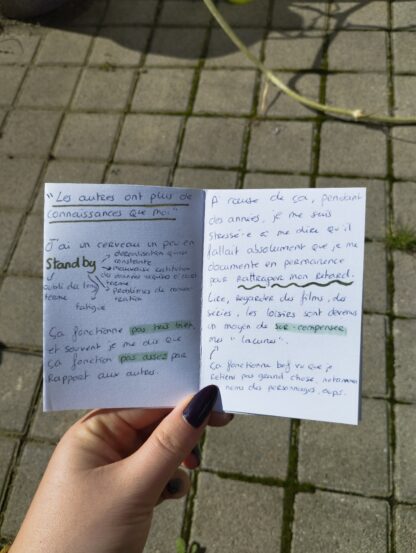 "Les autres ont plus de
connaissances que moi."
J'ai un cerveau un peu en
Stand by
→ déréalisation quasi
constante
→ mauvaise restitution
de manière écrite et orale
oubli du long
terme
→ problèmes de concen-
tration
fatigue
Ça fonctionne pas très bien,
et souvent je me dis que
ça fonction pas assez par
Rapport aux autres.
A cause de ça, pendant
des années, je me suis
stressé·e à me dire qu'il
fallait absolument que je me
documente en permanence
pour rattraper mon retard.
Lire, regarder des films, des
séries, les loisirs sont devenus
un moyen de sur-compenser
mes "lacunes".
Ça fonctionne bof vu que je
retiens pas grand chose, notamment
noms des personnages, oups.